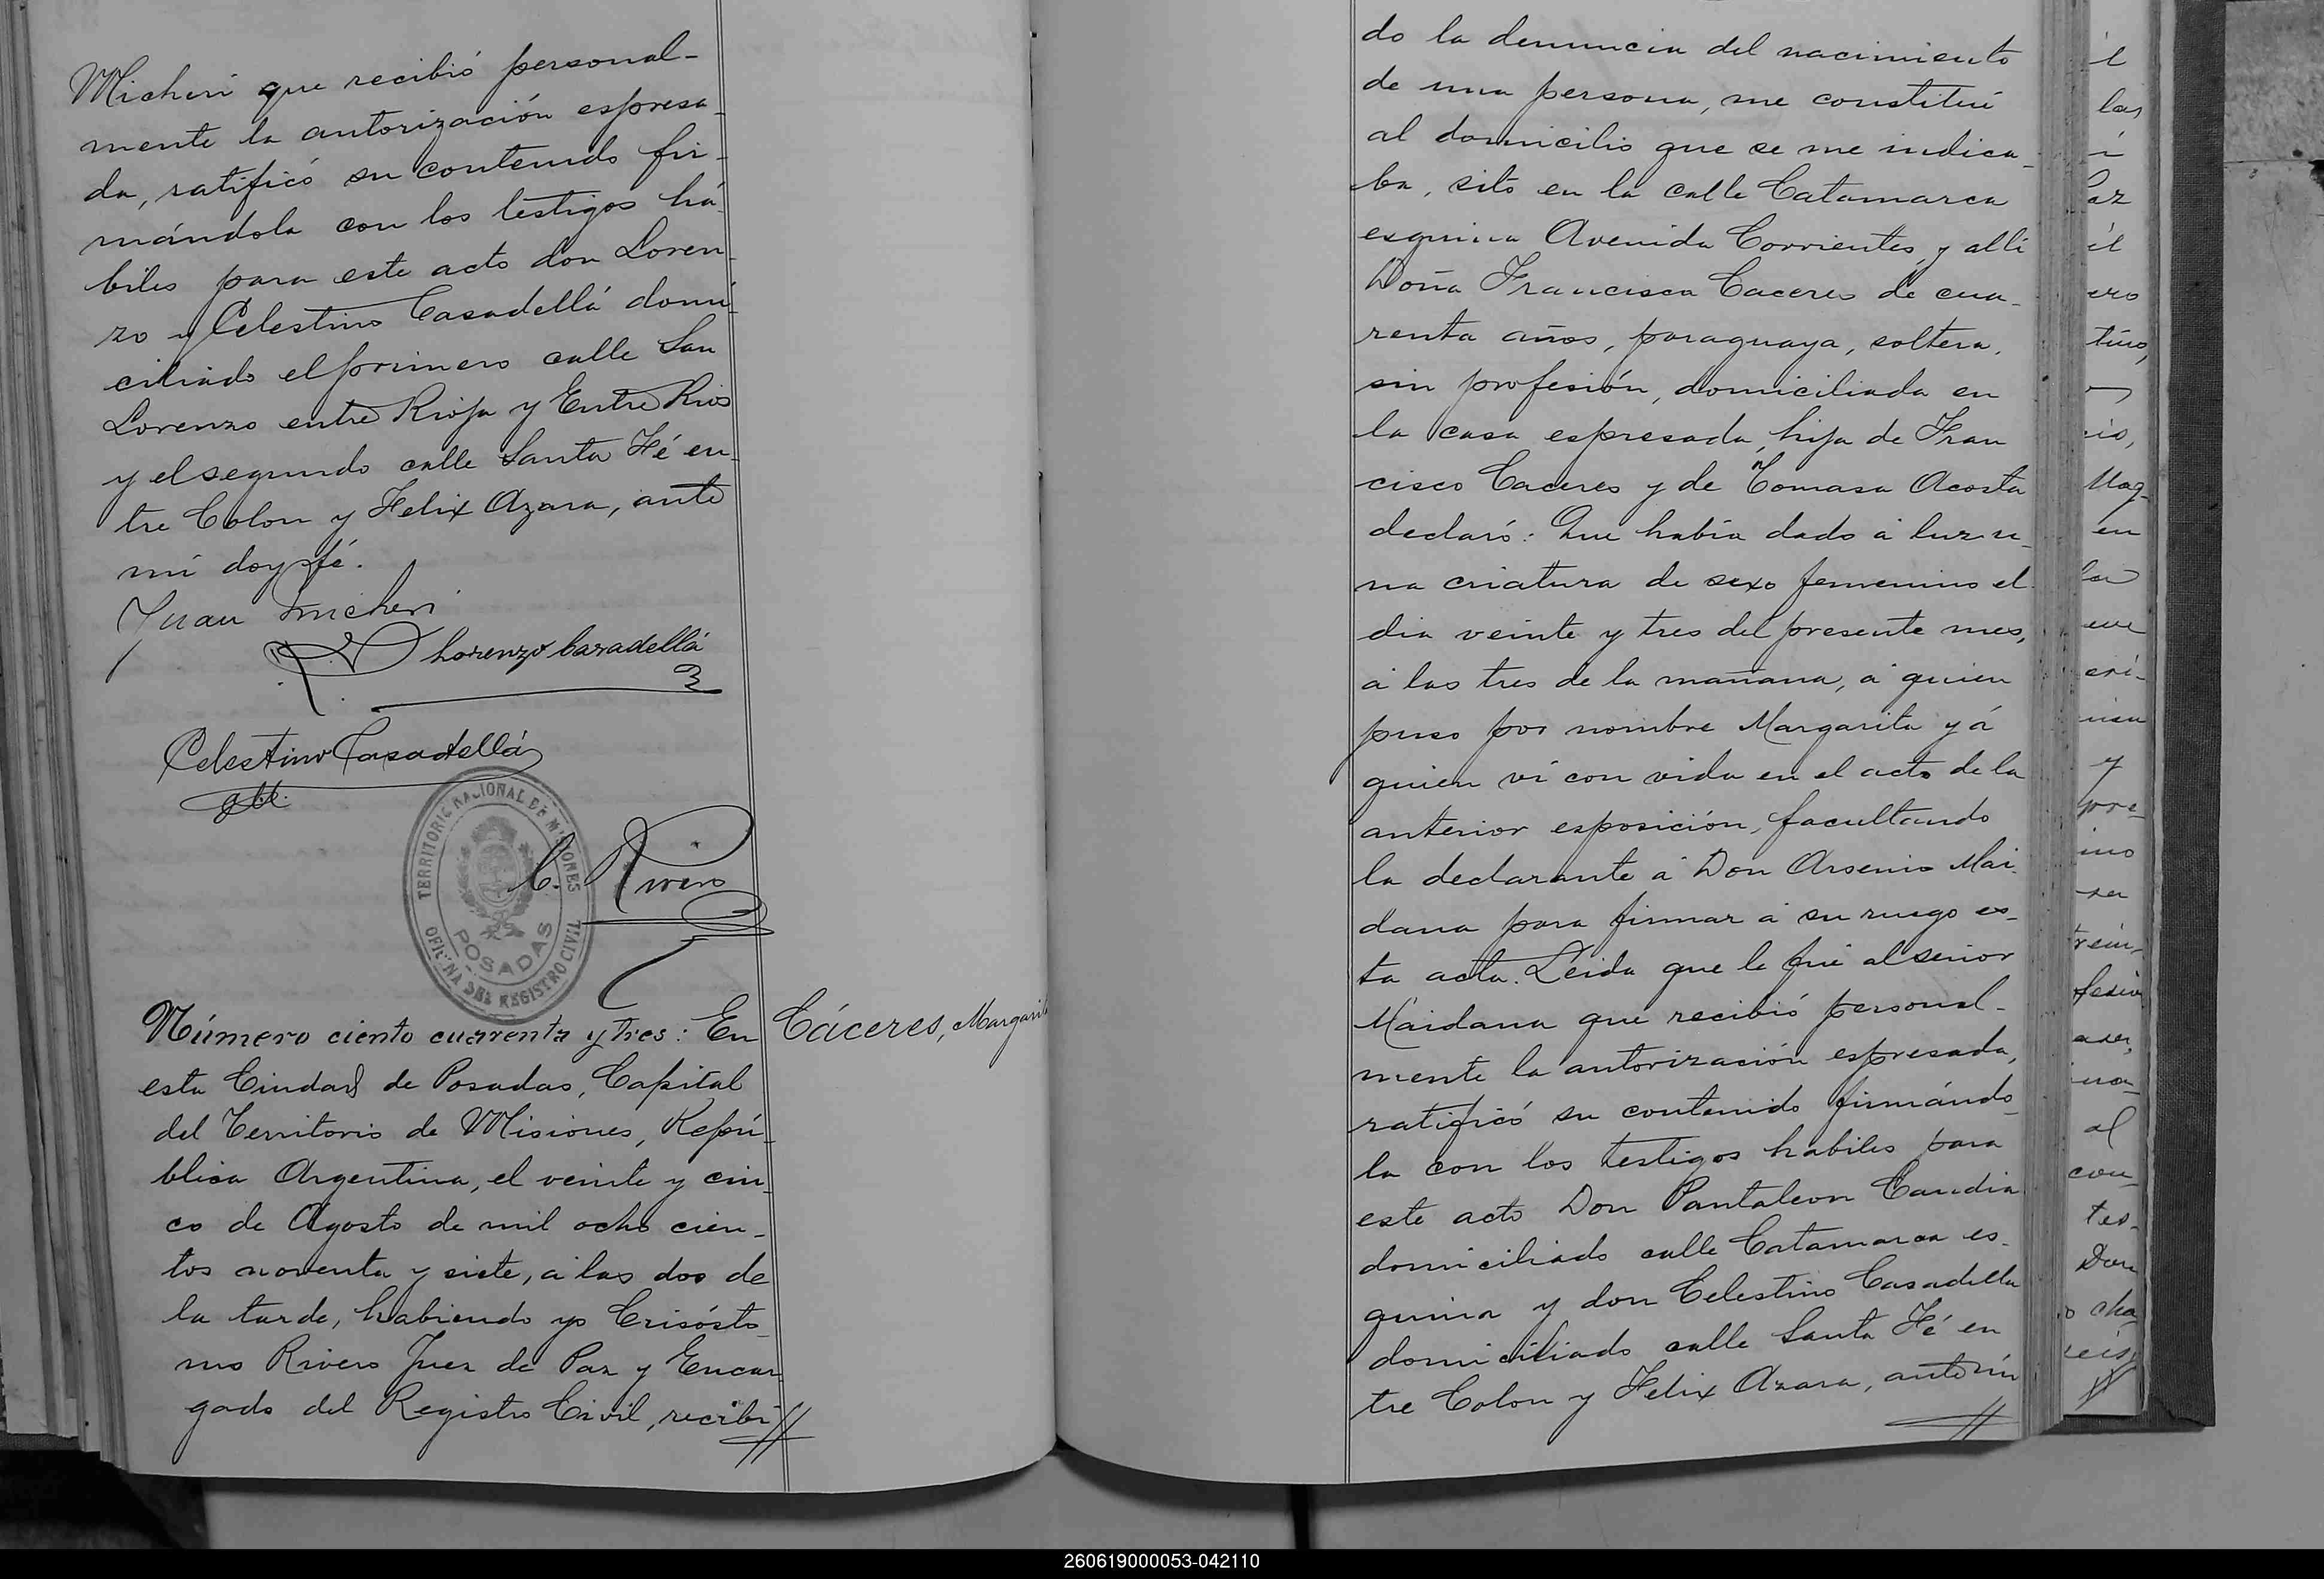 Micheri que recibió personal-
mente la autorización espresa-
da, ratificó su contenido fir-
mándola con los testigos há-
biles para este acto don Loren-
zo y Celestino Casadellá domi-
ciliado el primero calle San
Lorenzo entre Rioja y Entre Rios
y el segundo calle Santa Fé en-
tre Colon y Felix Azara, ante
mi doy fé.
Juan Micheri
Lorenzo Casadellá
Celestino Casadellá
TERRITORIO NACIONAL DE MISIONES
POSADAS
OFICINA DEL REGISTRO CIVIL
C. Rivero
Número ciento cuarenta y tres: En
Cáceres, Margarita
esta Ciudad de Posadas, Capital
del Territorio de Misiones, Repú-
blica Argentina, el veinte y cin-
co de Agosto de mil ocho cien-
tos noventa y siete, á las dos de
la tarde, habiendo yo Crisósto-
mo Rivero Juez de Paz y Encar-
gado del Registro Civil, recibi
do la denuncia del nacimiento
de una persona, me constitui
al domicilio que se me indica-
ba, sito en la calle Catamarca
esquina Avenida Corrientes, y alli
Doña Francisca Caceres de cua-
renta años, paraguaya, soltera,
sin profesión, domiciliada en
la casa espresada, hija de Fran
cisco Caceres y de Tomasa Acosta
declaró: Que habia dado á luz u-
na criatura de sexo femenino el
dia veinte y tres del presente mes,
á las tres de la mañana, á quien
puso por nombre Margarita y á
quien vi con vida en el acto de la
anterior esposición, facultando
la declarante á Don Arsenio Mai-
dana para firmar á su ruego es-
ta acta. Leida que le fué al señor
Maidana que recibió personal-
mente la autorización espresada,
ratificó su contenido firmándo-
la con los testigos habiles para
este acto Don Pantaleon Candia
domiciliado calle Catamarca es-
quina y don Celestino Casadella
domiciliado calle Santa Fé en
tre Colon y Felix Azara, ante mi
260619000053-042110